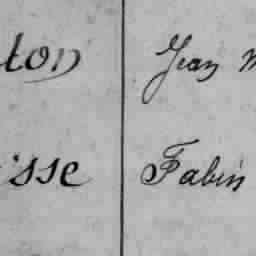 ton Jean M
isse Fabien